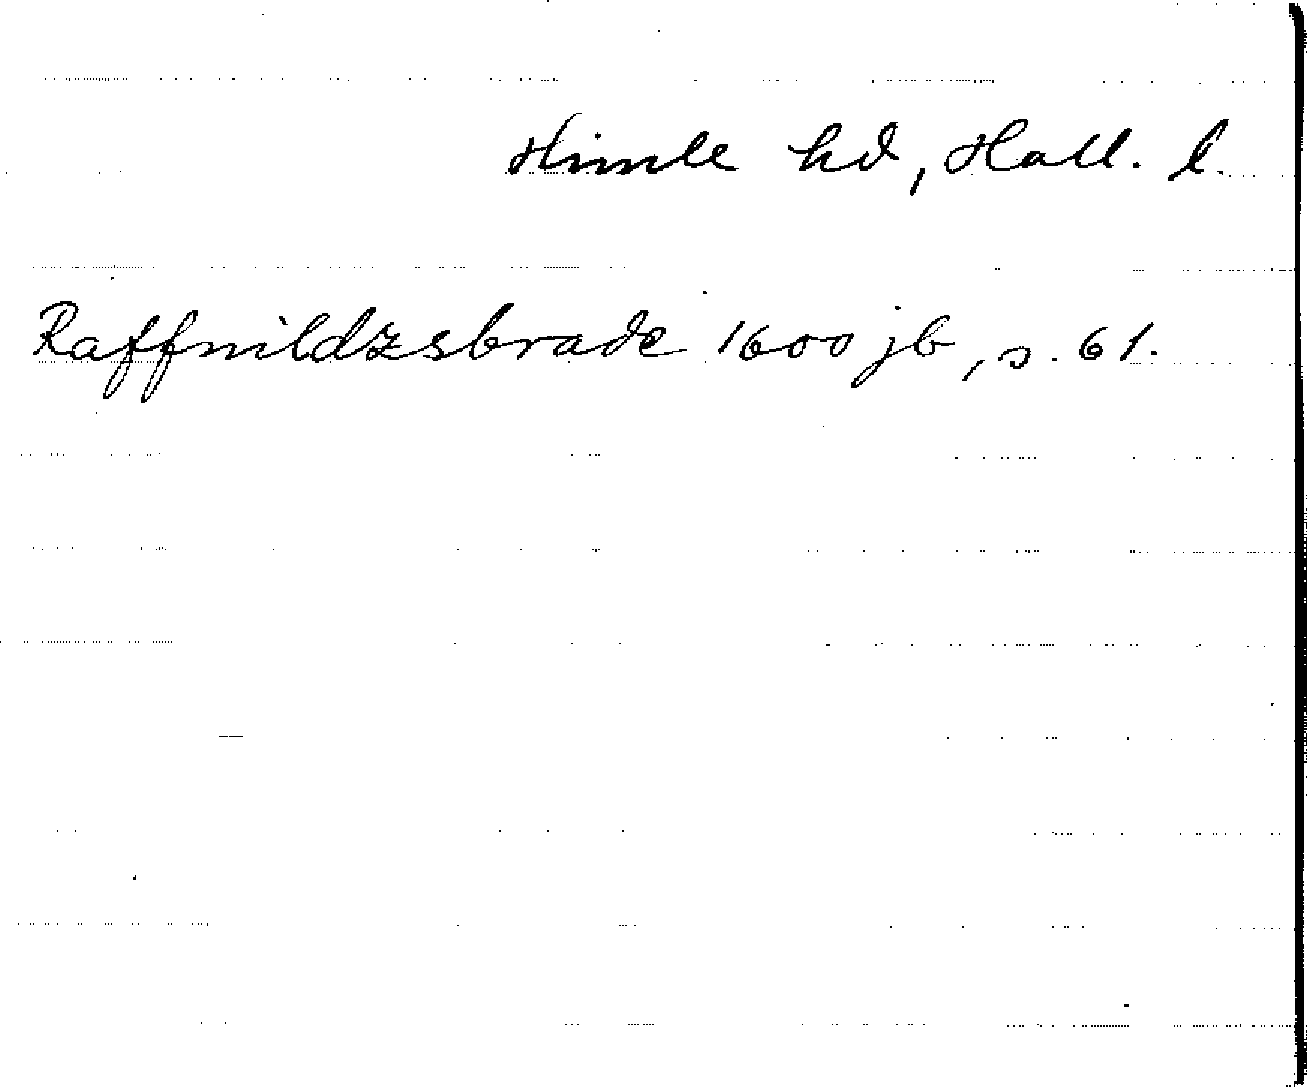 Himle hd, Hall. l.
Raffnildzsbrade 1600 jb, s. 61.